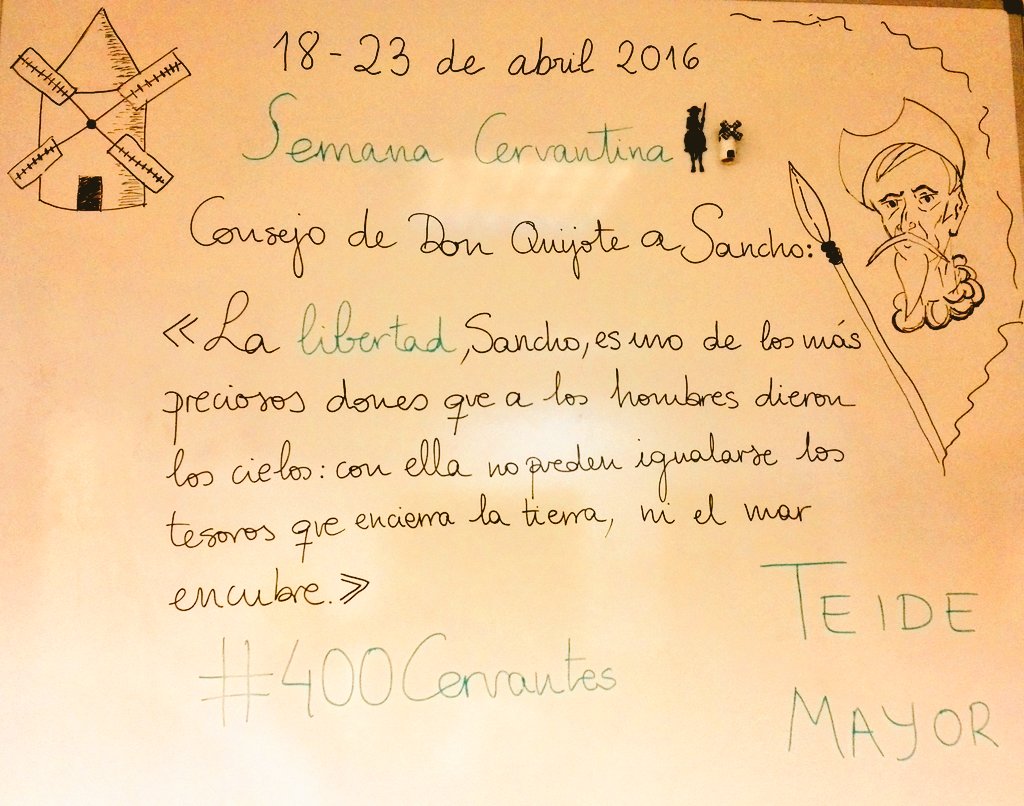 18-23 de abril 2016
Semana Cervantina
Consejo de Don Quijote a Sancho:
«La libertad, Sancho, es uno de los más
preciosos dones que a los hombres dieron
los cielos: con ella no pueden igualarse los
tesoros que encierra la tierra, ni el mar
encubre.»
#400Cervantes
TEIDE
MAYOR